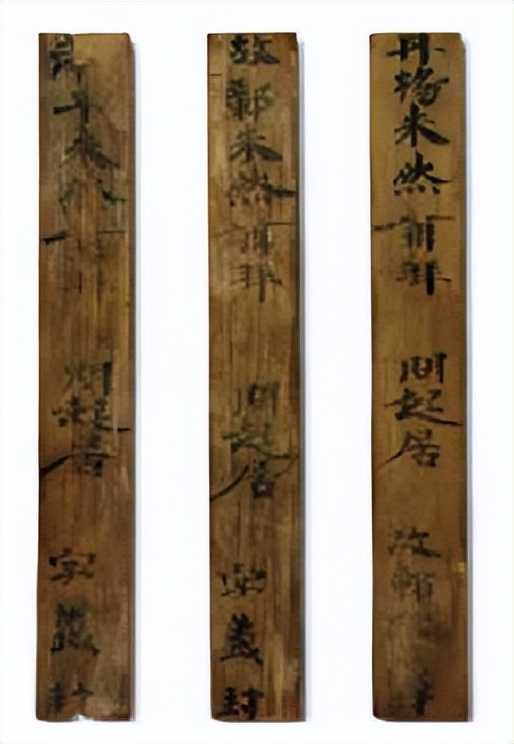 丹楊朱然再拜 問起居 故鄣 封
故鄣朱然再拜 問起居 字義封
弟子朱然 問起居 字義封